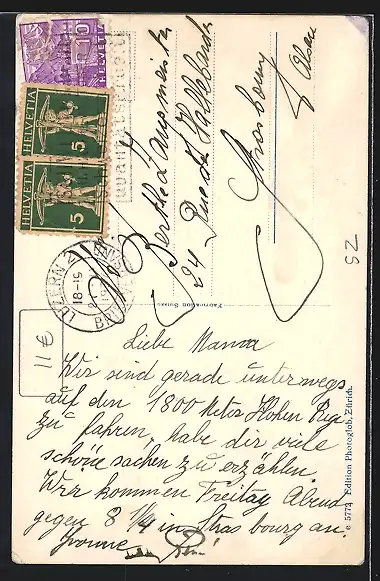 HELVETIA 10
HELVETIA 5
HELVETIA 5
LUZERN 2
18-19
BRIEF
Bertha
24 Rue de
Strasbourg
Elsass
25
Fabrication Suisse
11 €
Liebe Mama
Wir sind gerade unterwegs
auf den 1800 Meter Hohen Rigi
zu fahren, habe dir viele
schöne sachen zu erzählen
Wir kommen Freitag Abend
gegen 8 1/4 in Strasbourg an.
Yvonne
© 5774 Edition Photoglob, Zürich.